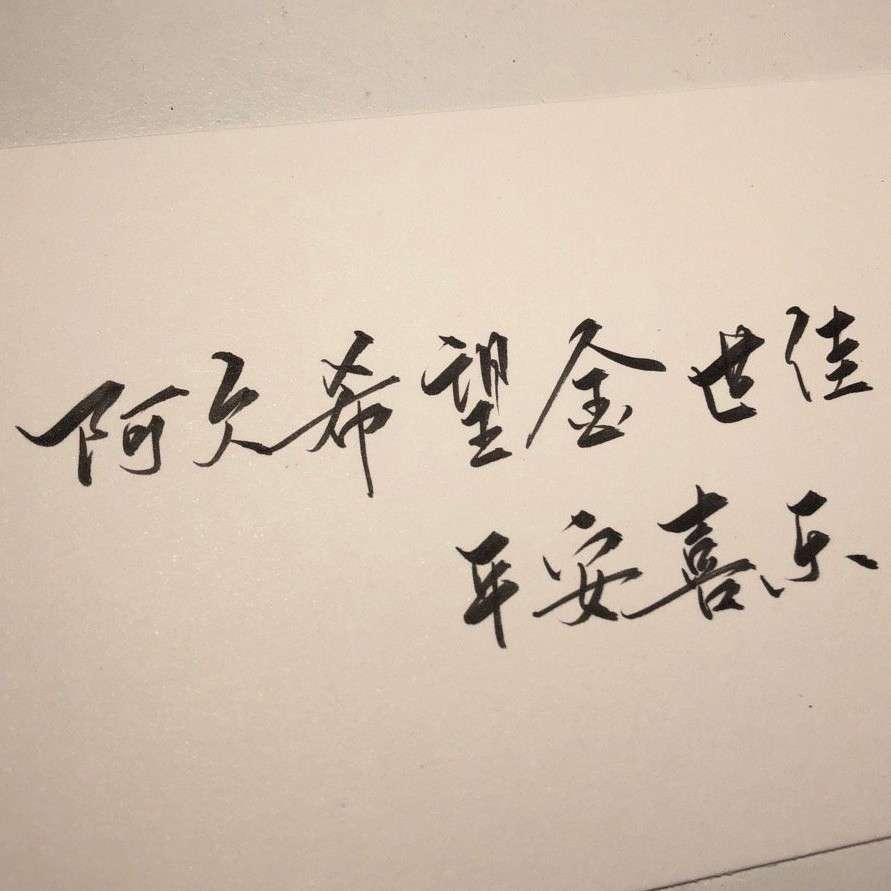 阿欠希望金世佳
平安喜乐